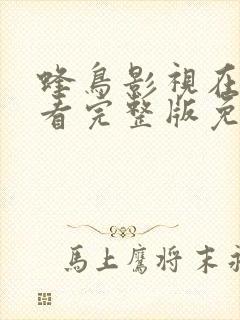 蜂鳥影視在
看完整版免
馬上鷹将末